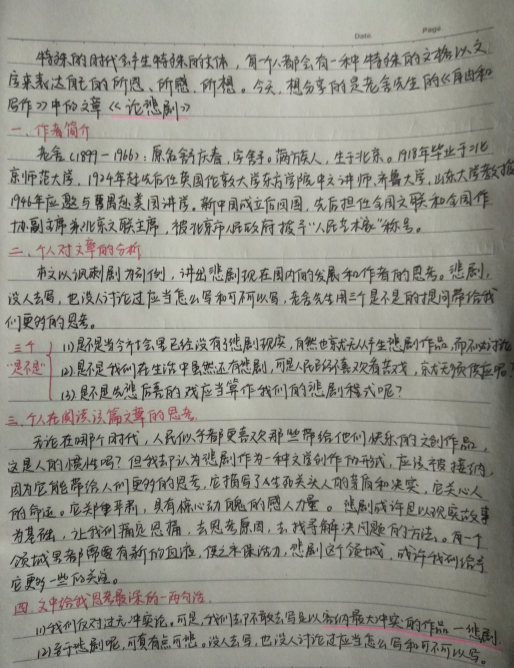 Date Page
特殊的时代会产生特殊的文体，每个人都会有一种特殊的文格以文
字来表达自己的所思、所感、所想。今天，想分享的是老舍先生的《自由和
写作》中的文章《论悲剧》
一、作者简介
老舍(1899-1966)：原名舒庆春，字舍予。满族人，生于北京。1918年毕业于北
京师范大学，1924年赴先后任英国伦敦大学东方学院中文讲师、齐鲁大学、山东大学教授
1946年应邀与曹禺赴美国讲学，新中国成立后回国，先后担任全国文联和全国作
协副主席兼北京文联主席，被北京市人民政府授予“人民艺术家”称号。
二、个人对文章的分析
本文以讽刺剧为引例，讲出悲剧现在国内的发展和作者的思考。悲剧，
没人去写，也没人讨论过应当怎么写和可不可以写，老舍先生用三个是不是的提问带给我
们更多的思考。
三个 (1)是不是当今社会里已经没有了悲剧现实，自然也就无从产生悲剧作品，而不必讨论
“是不是” (2)是不是我们在生活中虽然还有悲剧，可是人民已经不喜欢看苦戏，就无须供应呢？
(3)是不是先悲后喜的戏应当算作我们的悲剧程式呢？
三、个人在阅读该篇文章的思考
无论在哪个时代，人民似乎都更喜欢那些带给他们快乐的文创作品，
这是人的惯性吗？但我却认为悲剧作为一种文学创作的形式，应该被接纳，
因为它能带给人们更多的思考，它描写了人生死关头人的矛盾和决实，它关心人
的命运。它郑重严肃，具有惊心动魄的感人力量。悲剧或许是以现实故事
为基础，让我们痛定思痛，去思考原因，去找寻解决问题的方法。每一个
领域里都需要有新的血液，使之永保活力，悲剧这个领域，或许我们给予
它更多一些的关注。
四、文中给我思考最深的一两句话
(1)我们反对过无冲突论。可是，我们却不敢去写足以容纳最大冲突的作品—悲剧
(2)至于悲剧呢，可真有点可悲。没人去写，也没人讨论过应当怎么写和可不可以写。